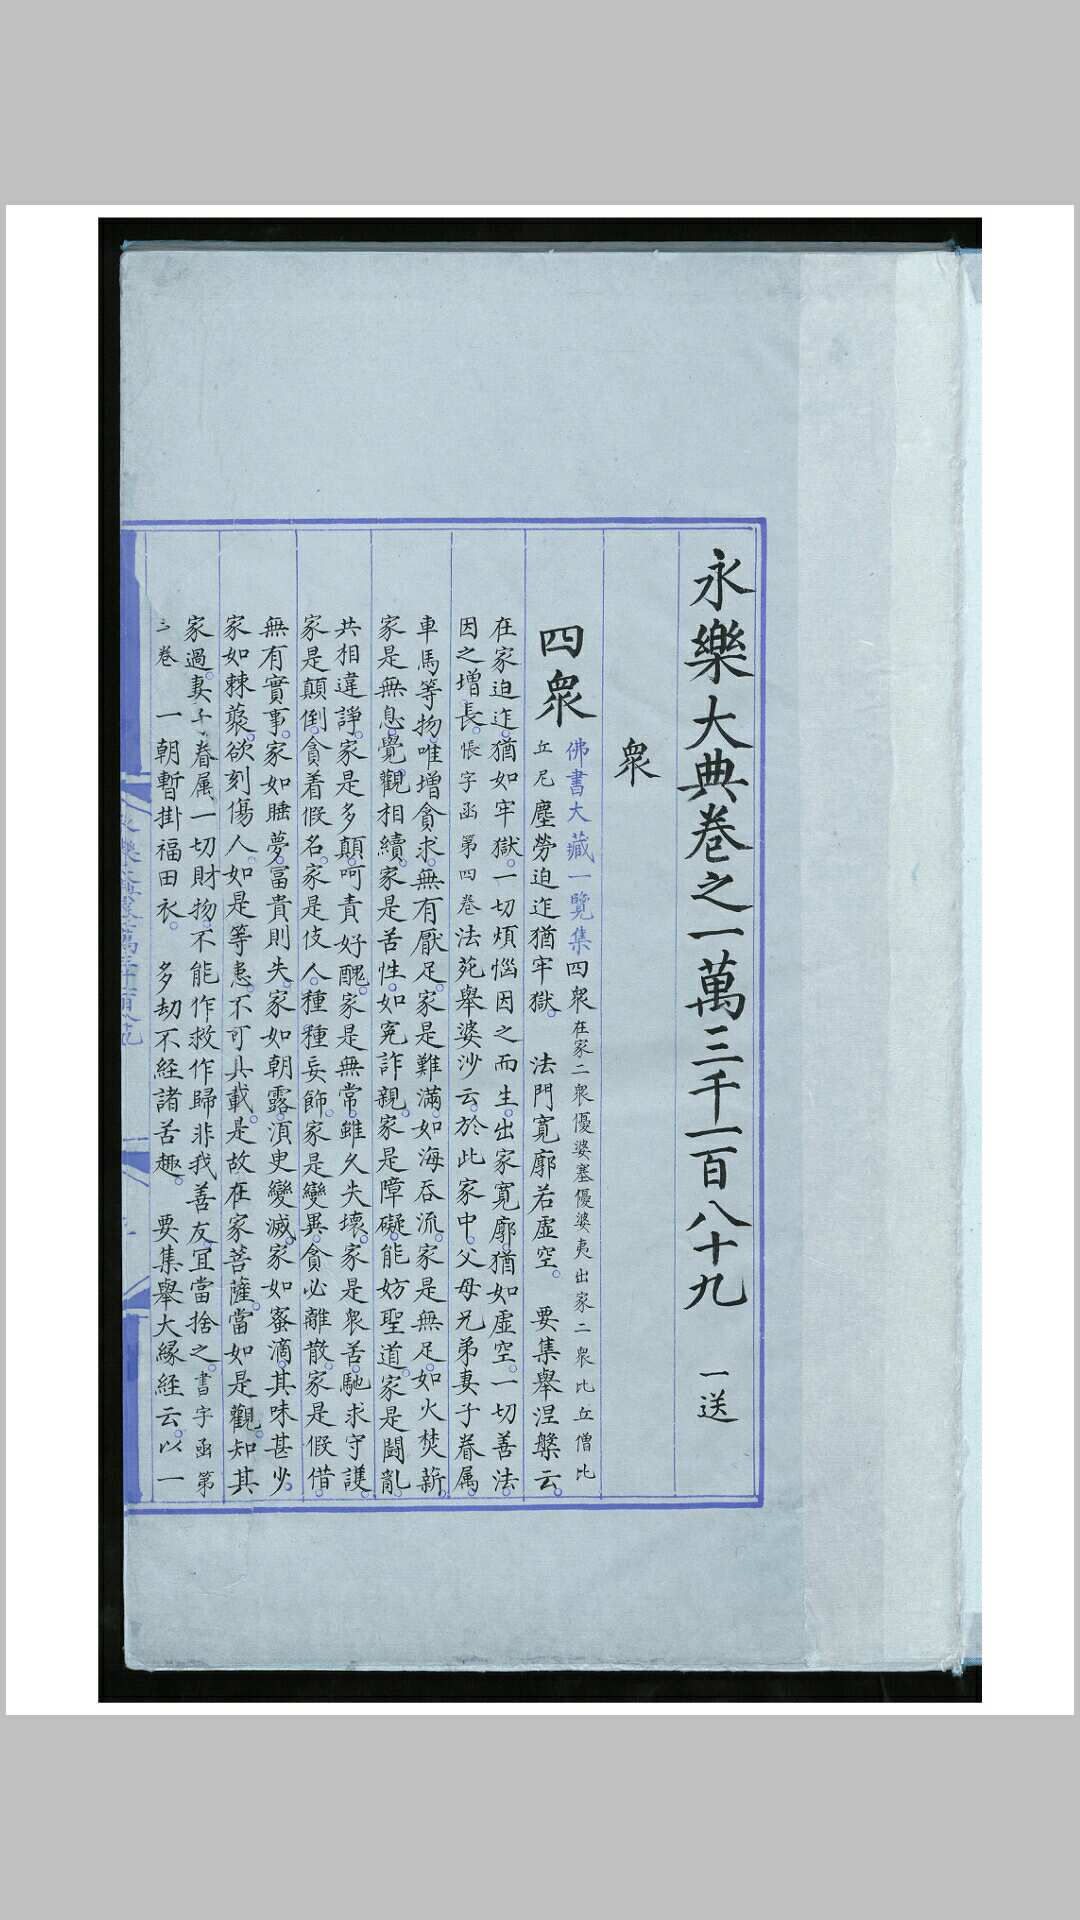 永樂大典卷之一萬三千一百八十九 一送
衆
四衆
佛書大藏一覽集四衆在家二衆優婆塞優婆夷出家二衆比丘僧比
丘尼塵勞迫迮猶牢獄。法門寬廓若虛空。要集舉涅槃云。
在家迫迮。猶如牢獄。一切煩惱因之而生。出家寬廓。猶如虛空。一切善法。
因之增長。悵字函第四卷法苑舉婆沙云。於此家中。父母兄弟妻子眷属。
車馬等物。唯增貪求。無有厭足。家是難滿。如海吞流。家是無足。如火焚薪。
家是無息。覺觀相續。家是苦性。如冤詐親。家是障礙。能妨聖道。家是鬪亂。
共相違諍。家是多顛。呵責好醜。家是無常。雖久失壞。家是衆苦。馳求守護。
家是顛倒。貪着假名。家是伎人。種種妄飾。家是變異。貪必離散。家是假借。
無有實事。家如睡夢。富貴則失。家如朝露。湏臾變滅。家如蜜滴。其味甚少。
家如棘藂。欲刻傷人。如是等患。不可具載。是故在家菩薩。當如是觀。知其
家過。妻子眷属。一切財物。不能作救作歸非我善友。冝當捨之。書字函第
三卷 一朝暫掛福田衣。多劫不經諸苦趣。要集舉大緣経云。以一